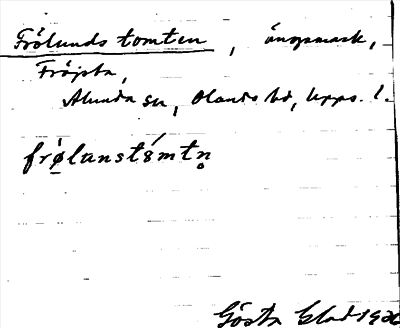 Frölunds tomten, ängsmark,
Fröjsta,
Alunda sn, Olands hd, Upps. l.
frø̀lunstómtn̥
Gösta Glad